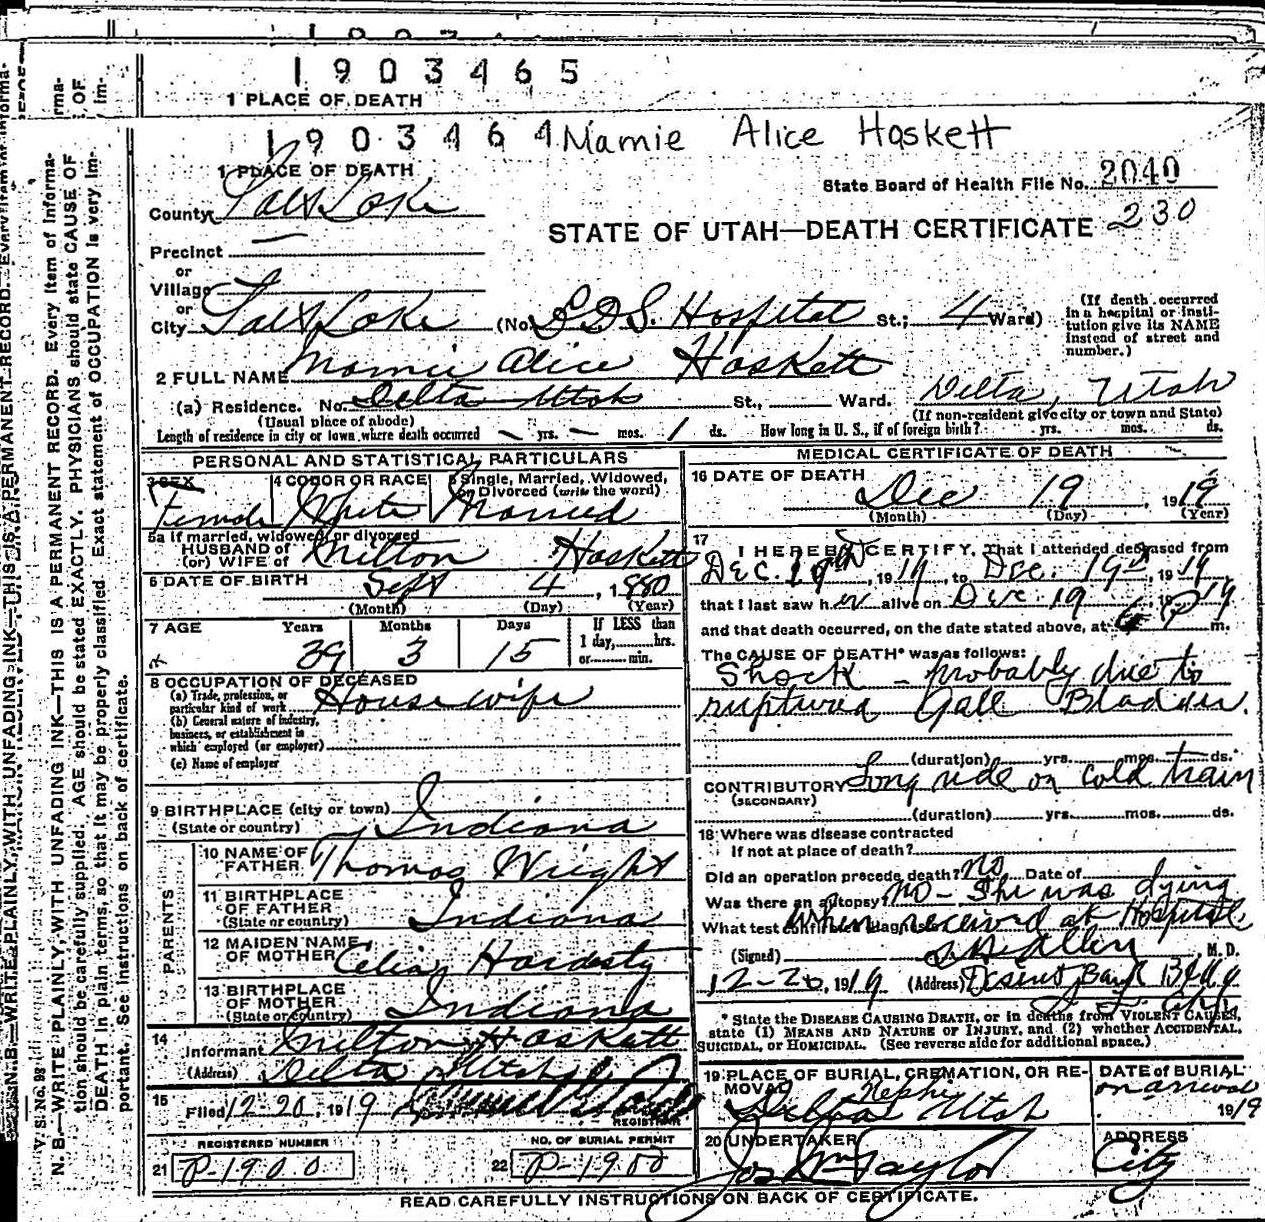 1903465
1 PLACE OF DEATH
1903464 Mamie Alice Haskett
1 PLACE OF DEATH
State Board of Health File No. 2040
County Salt Lake
STATE OF UTAH—DEATH CERTIFICATE 230
Precinct —
or
Village
or
City Salt Lake (No. L.D.S. Hospital St.; 4 Ward)
(If death occurred in a hospital or institution give its NAME instead of street and number.)
2 FULL NAME Mamie Alice Haskett
(a) Residence. No. Delta Utah St., Ward. Delta, Utah
(Usual place of abode) (If non-resident give city or town and State)
Length of residence in city or town where death occurred — yrs. — mos. 1 ds. How long in U. S., if of foreign birth? yrs. mos. ds.
PERSONAL AND STATISTICAL PARTICULARS
3 SEX 4 COLOR OR RACE 5 Single, Married, Widowed, or Divorced (write the word)
Female White Married
5a If married, widowed, or divorced
HUSBAND of
(or) WIFE of Milton Haskett
6 DATE OF BIRTH Sept 4, 1880
(Month) (Day) (Year)
7 AGE Years Months Days If LESS than
39 3 15 1 day, hrs.
or min.
8 OCCUPATION OF DECEASED
(a) Trade, profession, or particular kind of work Housewife
(b) General nature of industry, business, or establishment in which employed (or employer)
(c) Name of employer
9 BIRTHPLACE (city or town)
(State or country) Indiana
PARENTS
10 NAME OF FATHER Thomas Wright
11 BIRTHPLACE OF FATHER
(State or country) Indiana
12 MAIDEN NAME OF MOTHER Celia Hardesty
13 BIRTHPLACE OF MOTHER
(State or country) Indiana
14 Informant Milton Haskett
(Address) Delta Utah
15 Filed 12-20, 1919
REGISTRAR
REGISTERED NUMBER NO. OF BURIAL PERMIT
21 P-1900 22 P-1900
MEDICAL CERTIFICATE OF DEATH
16 DATE OF DEATH
Dec 19, 1919
(Month) (Day) (Year)
17 I HEREBY CERTIFY, That I attended deceased from
Dec. 19th, 1919, to Dec. 19th, 1919,
that I last saw her alive on Dec. 19 1919
and that death occurred, on the date stated above, at 6 P m.
The CAUSE OF DEATH* was as follows:
Shock - probably due to
ruptured Gall Bladder.
(duration) yrs. mos. ds.
CONTRIBUTORY Long ride on cold train
(SECONDARY)
(duration) yrs. mos. ds.
18 Where was disease contracted
If not at place of death?
Did an operation precede death? no Date of
Was there an autopsy? no - She was dying
What test confirmed diagnosis? when received at Hospital.
(Signed) Allen M. D.
12-20, 1919 (Address) Deseret Bank Bldg
* State the DISEASE CAUSING DEATH, or in deaths from VIOLENT CAUSES,
state (1) MEANS AND NATURE OF INJURY, and (2) whether ACCIDENTAL,
SUICIDAL, or HOMICIDAL. (See reverse side for additional space.)
19 PLACE OF BURIAL, CREMATION, OR REMOVAL DATE OF BURIAL
Nephi on arrival
Delta Utah 1919
20 UNDERTAKER ADDRESS
Jos Wm Taylor City
READ CAREFULLY INSTRUCTIONS ON BACK OF CERTIFICATE.
N. B.—WRITE PLAINLY, WITH UNFADING INK—THIS IS A PERMANENT RECORD. Every item of information should be carefully supplied. AGE should be stated EXACTLY. PHYSICIANS should state CAUSE OF DEATH in plain terms, so that it may be properly classified. Exact statement of OCCUPATION is very important. See instructions on back of certificate.